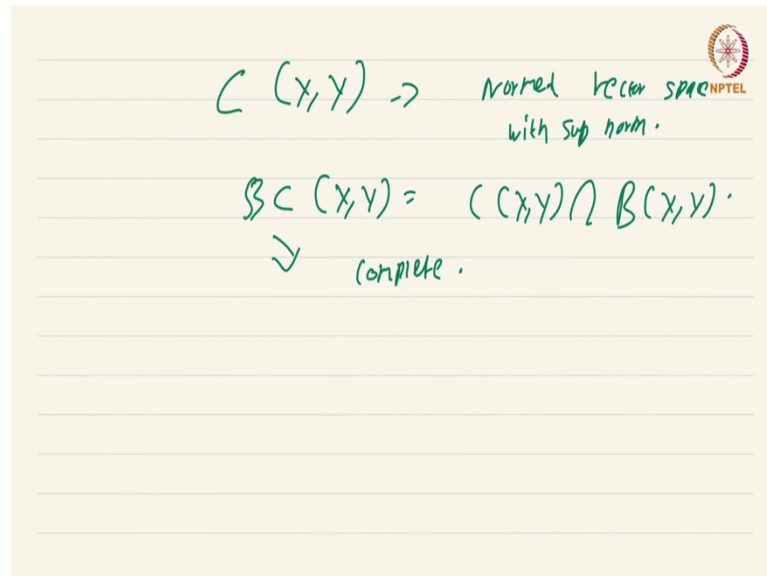 C (X,Y) -> Normed vector space
NPTEL
with sup norm.
BC (X,Y) = C(X,Y) ∩ B(X,Y).
complete.